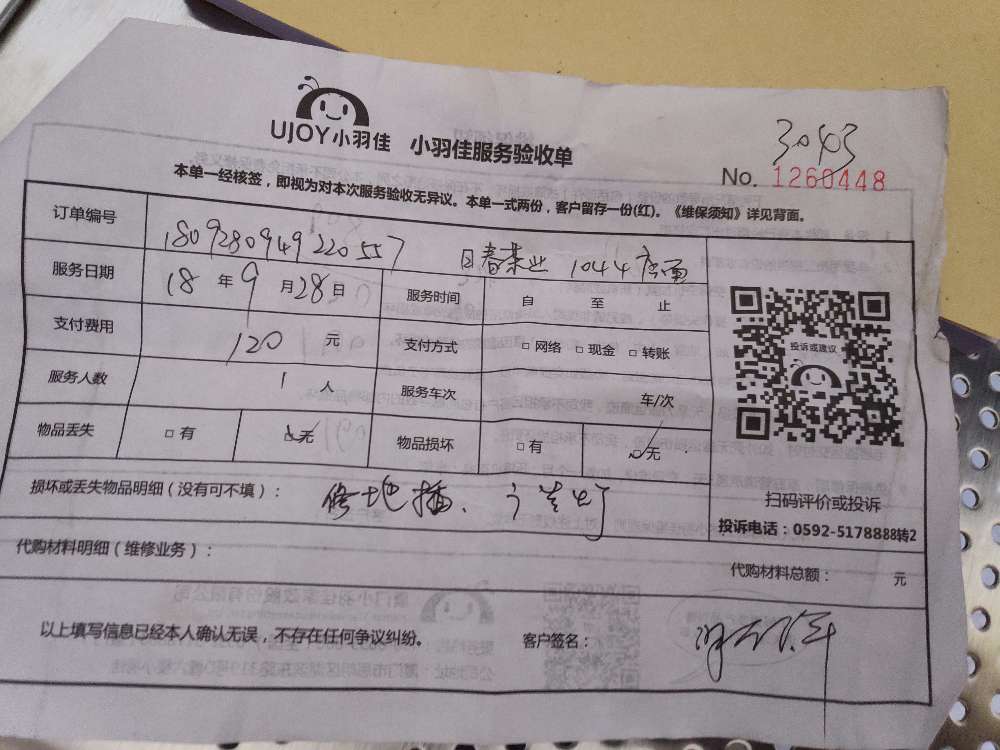 3043
UJOY小羽佳 小羽佳服务验收单
No. 1260448
本单一经核签，即视为对本次服务验收无异议。本单一式两份，客户留存一份(红)。《维保须知》详见背面。
订单编号 1809280949220557 日春茶业 1044店面
服务日期 18年9月28日 服务时间 自 至 止
支付费用 120元 支付方式 □网络 □现金 □转账
投诉或建议
服务人数 1人 服务车次 车/次
物品丢失 □有 □无 物品损坏 □有 □无
损坏或丢失物品明细（没有可不填）： 修地插、
扫码评价或投诉
投诉电话：0592-5178888转2
代购材料明细（维修业务）：
代购材料总额： 元
以上填写信息已经本人确认无误，不存在任何争议纠纷。 客户签名：